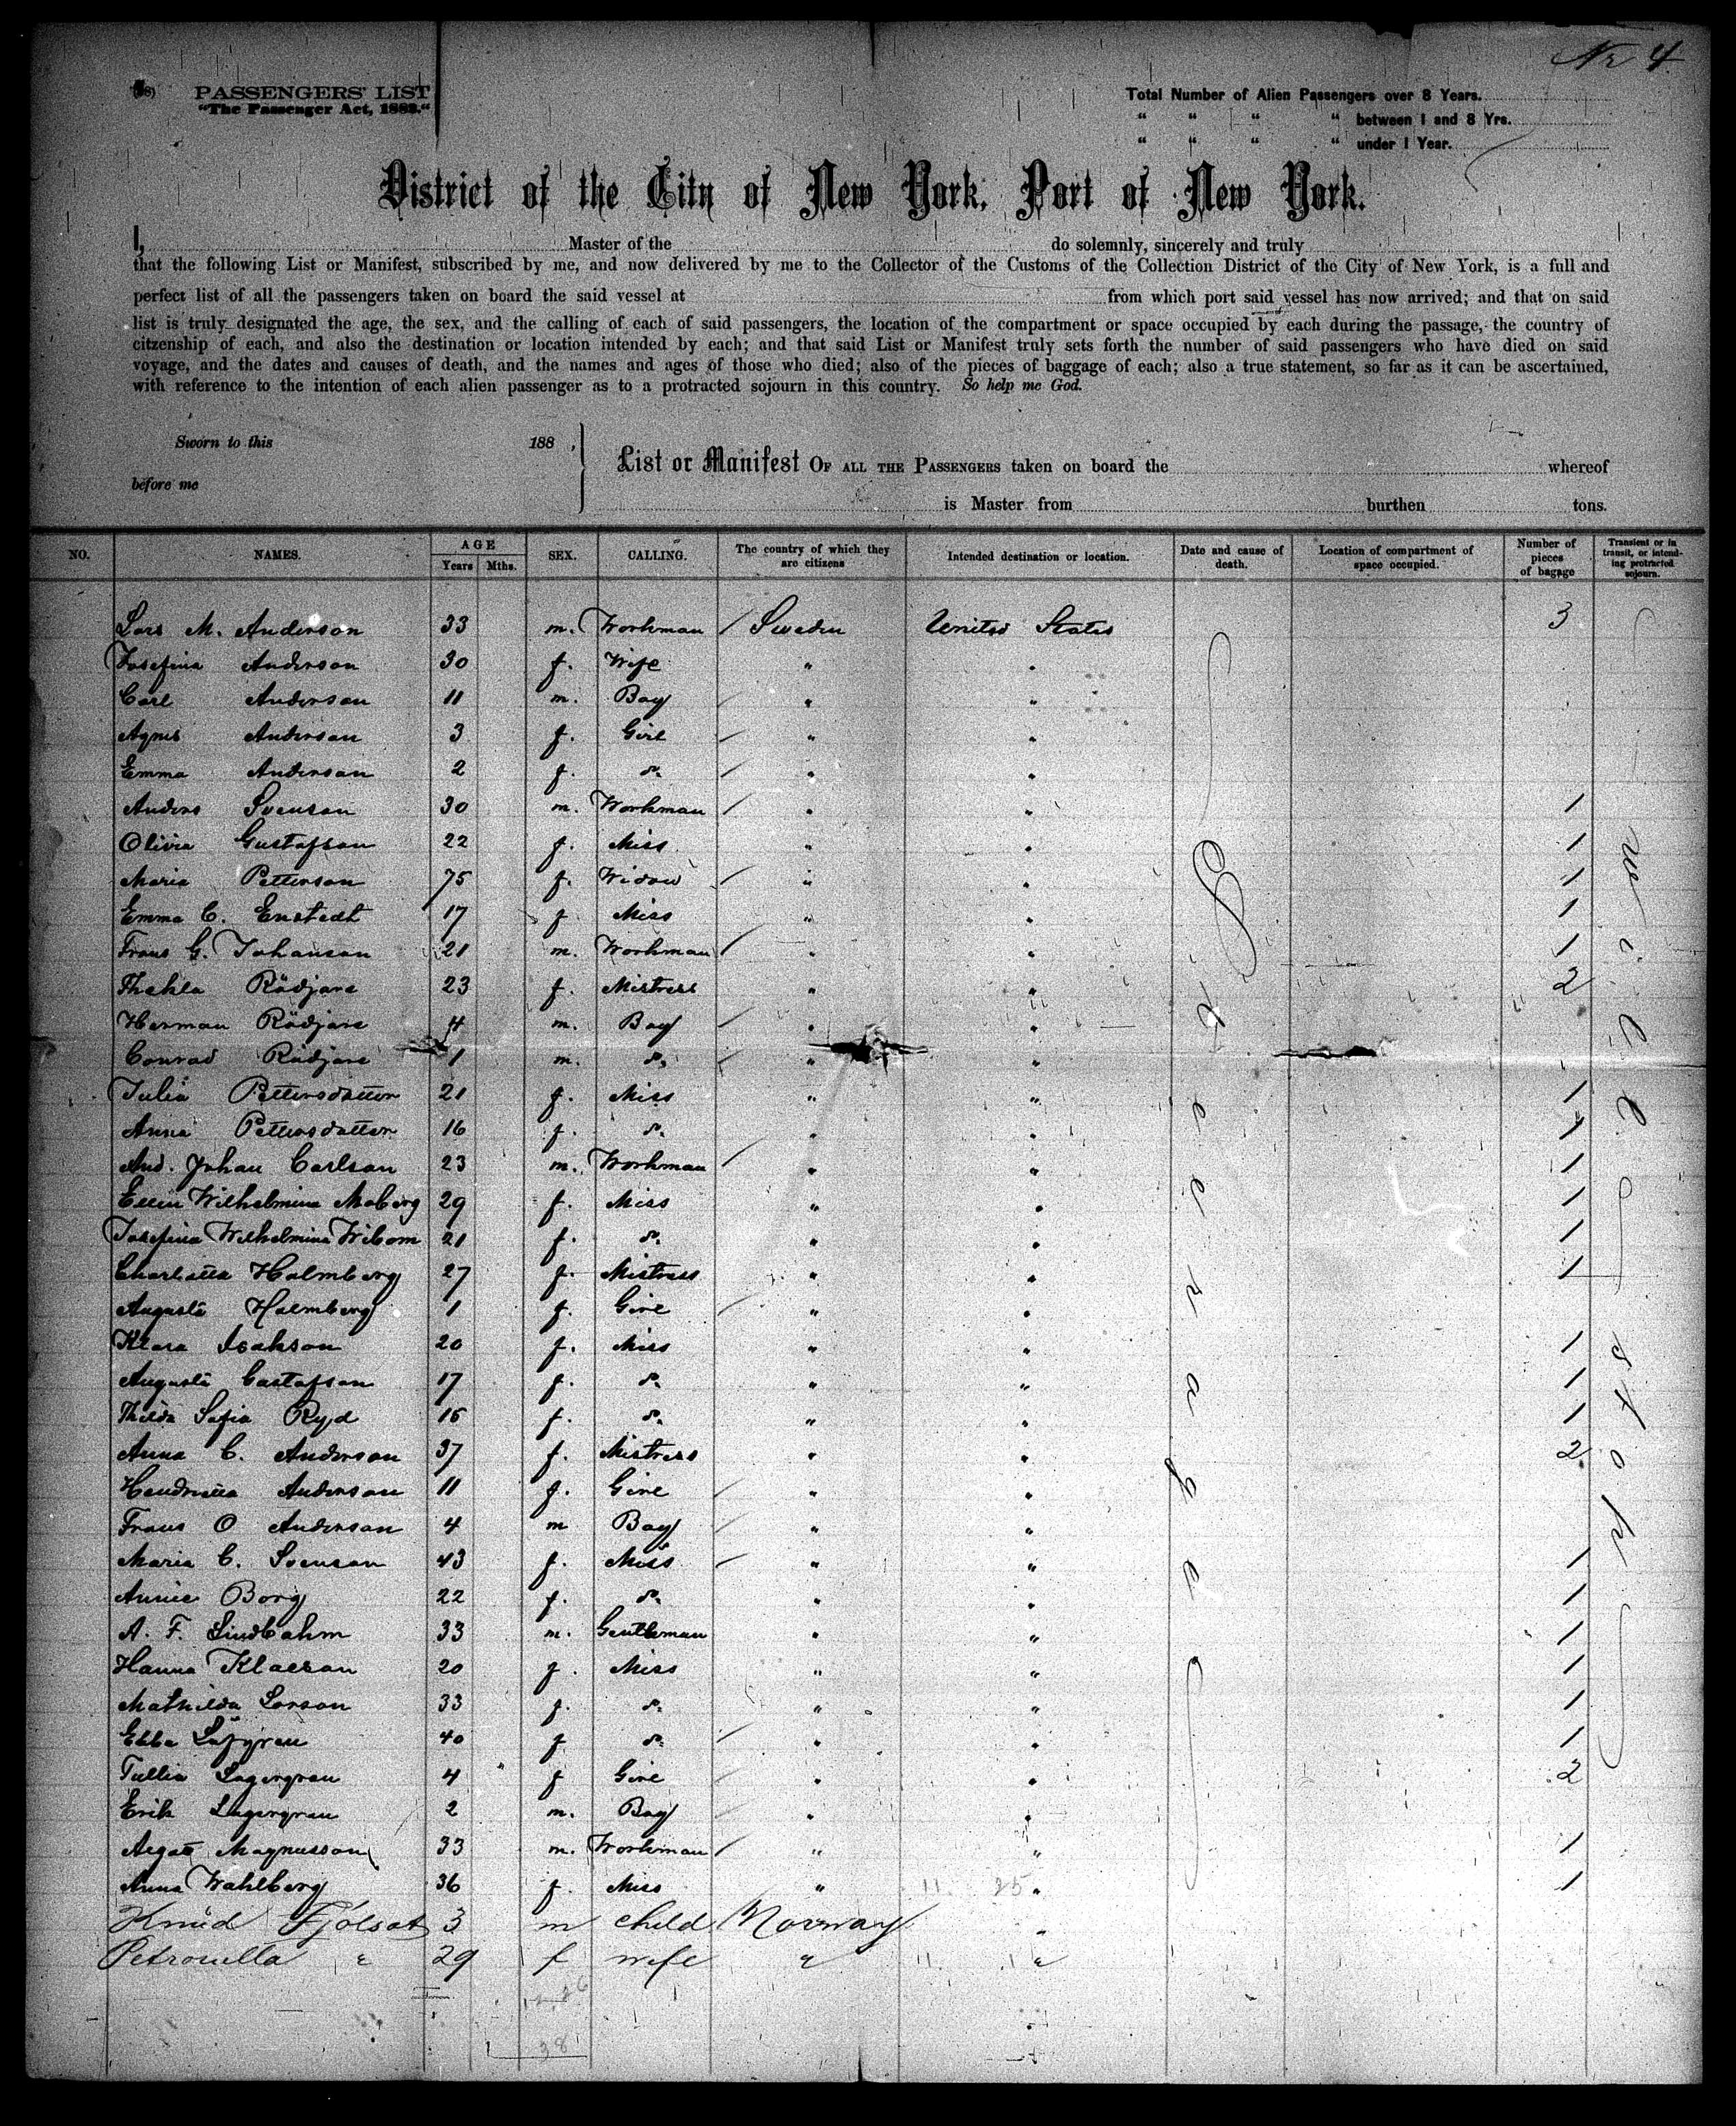 Nr 4
PASSENGERS' LIST
"The Passenger Act, 1882."
Total Number of Alien Passengers over 8 Years.
" " " " between 1 and 8 Yrs.
" " " " under 1 Year.
District of the City of New York, Port of New York.
I, Master of the do solemnly, sincerely and truly
that the following List or Manifest, subscribed by me, and now delivered by me to the Collector of the Customs of the Collection District of the City of New York, is a full and
perfect list of all the passengers taken on board the said vessel at from which port said vessel has now arrived; and that on said
list is truly designated the age, the sex, and the calling of each of said passengers, the location of the compartment or space occupied by each during the passage, the country of
citzenship of each, and also the destination or location intended by each; and that said List or Manifest truly sets forth the number of said passengers who have died on said
voyage, and the dates and causes of death, and the names and ages of those who died; also of the pieces of baggage of each; also a true statement, so far as it can be ascertained,
with reference to the intention of each alien passenger as to a protracted sojourn in this country. So help me God.
Sworn to this 188 ,
before me
List or Manifest OF ALL THE PASSENGERS taken on board the whereof
is Master from burthen tons.
NO. NAMES. AGE Years Mths. SEX. CALLING. The country of which they are citizens Intended destination or location. Date and cause of death. Location of compartment of space occupied. Number of pieces of bagage Transient or in transit, or intending protracted sojourn.
Lars M. Anderson 33 m. Workman / Sweden United States 3
Josefina Anderson 30 f. Wife " "
Carl Anderson 11 m. Boy / " "
Agnes Anderson 3 f. Girl / " "
Emma Anderson 2 f. do. / " "
Anders Svenson 30 m. Workman / " " 1
Olivia Gustafson 22 f. Miss " " 1
Maria Petterson 75 f. Widow / " " 1
Emma C. Enstedt 17 f Miss " " 1
Frans G. Johanson 21 m. Workman / " " 1
Thekla Rödjare 23 f. Mistress " " 2
Herman Rödjare 4 m. Boy / " "
Conrad Rödjare 1 m. do. / " "
Julia Pettersdatter 21 f. Miss " " 1
Anna Pettersdatter 16 f. do. " " 1
And. Johan Carlson 23 m. Workman / " " 1
Ellin Wilhelmina Moberg 29 f. Miss " " 1
Josefina Wilhelmina Wibom 21 f. do. " " 1
Charlotta Holmberg 27 f. Mistress " " 1
Augusta Holmberg 1 f. Girl / " "
Klara Isakson 20 f. Miss " " 1
Augusta Gustafson 17 f. do. " " 1
Thilda Sofia Ryd 15 f. do. " " 1
Anna C. Anderson 37 f. Mistress " " 2
Hendrietta Anderson 11 f. Girl / " "
Frans O Anderson 4 m Boy / " "
Maria C. Svenson 43 f. Miss / " " 1
Annie Borg 22 f. do. " " 1
A. F. Lindbahm 33 m. Gentleman " " 1
Hanna Klaeson 20 f. Miss " " 1
Mathilda Larson 33 f. do. " " 1
Ebba Löfgren 40 f do. / " " 1
Tullia Lagergren 4 f Girl / " " 2
Erik Lagergren 2 m. Boy / " "
Magnusson 33 m. Workman / " " 1
Anna Wahlberg 36 f. Miss " 11 25 " 1
Knud Fjolsat 3 m child Norway "
Petronella " 29 f wife " 11 "
38
Steerage